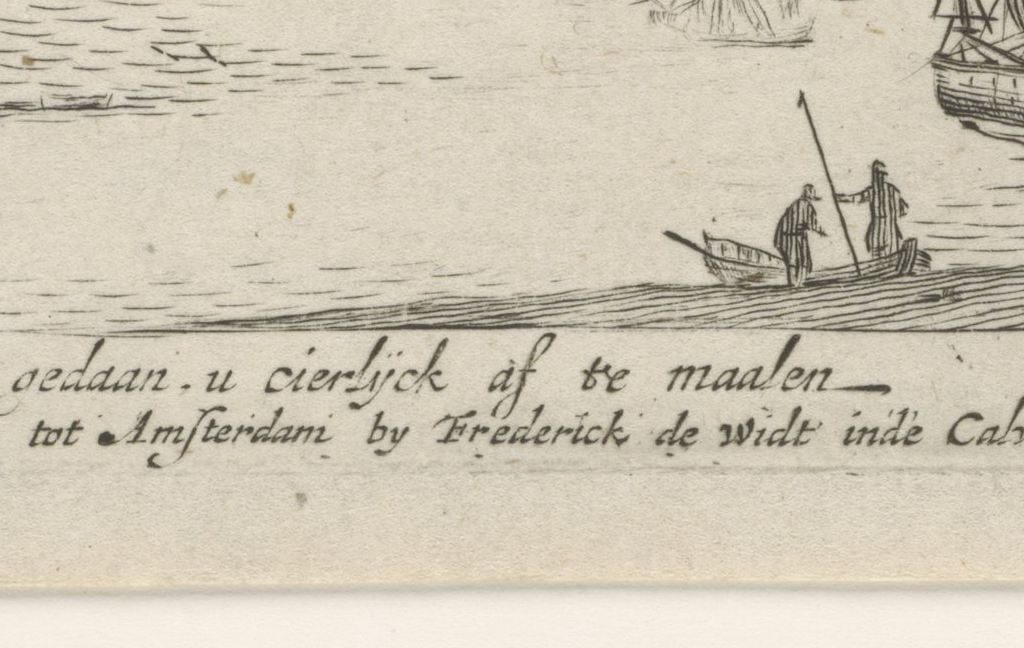 gedaan. u cierlÿck af te maalen
tot Amsterdam by Frederick de Widt inde Calv